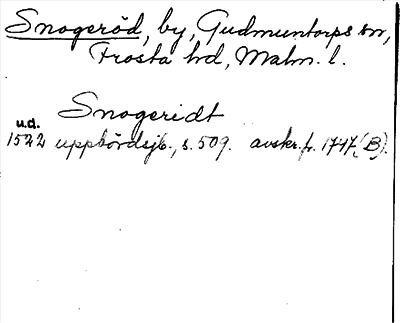 Snogeröd, by, Gudmuntorps sn,
Frosta hd, Malm. l.
Snogeridt
u.d.
1522 uppbördsjb., s. 509. avskr. fr. 1747 (B).